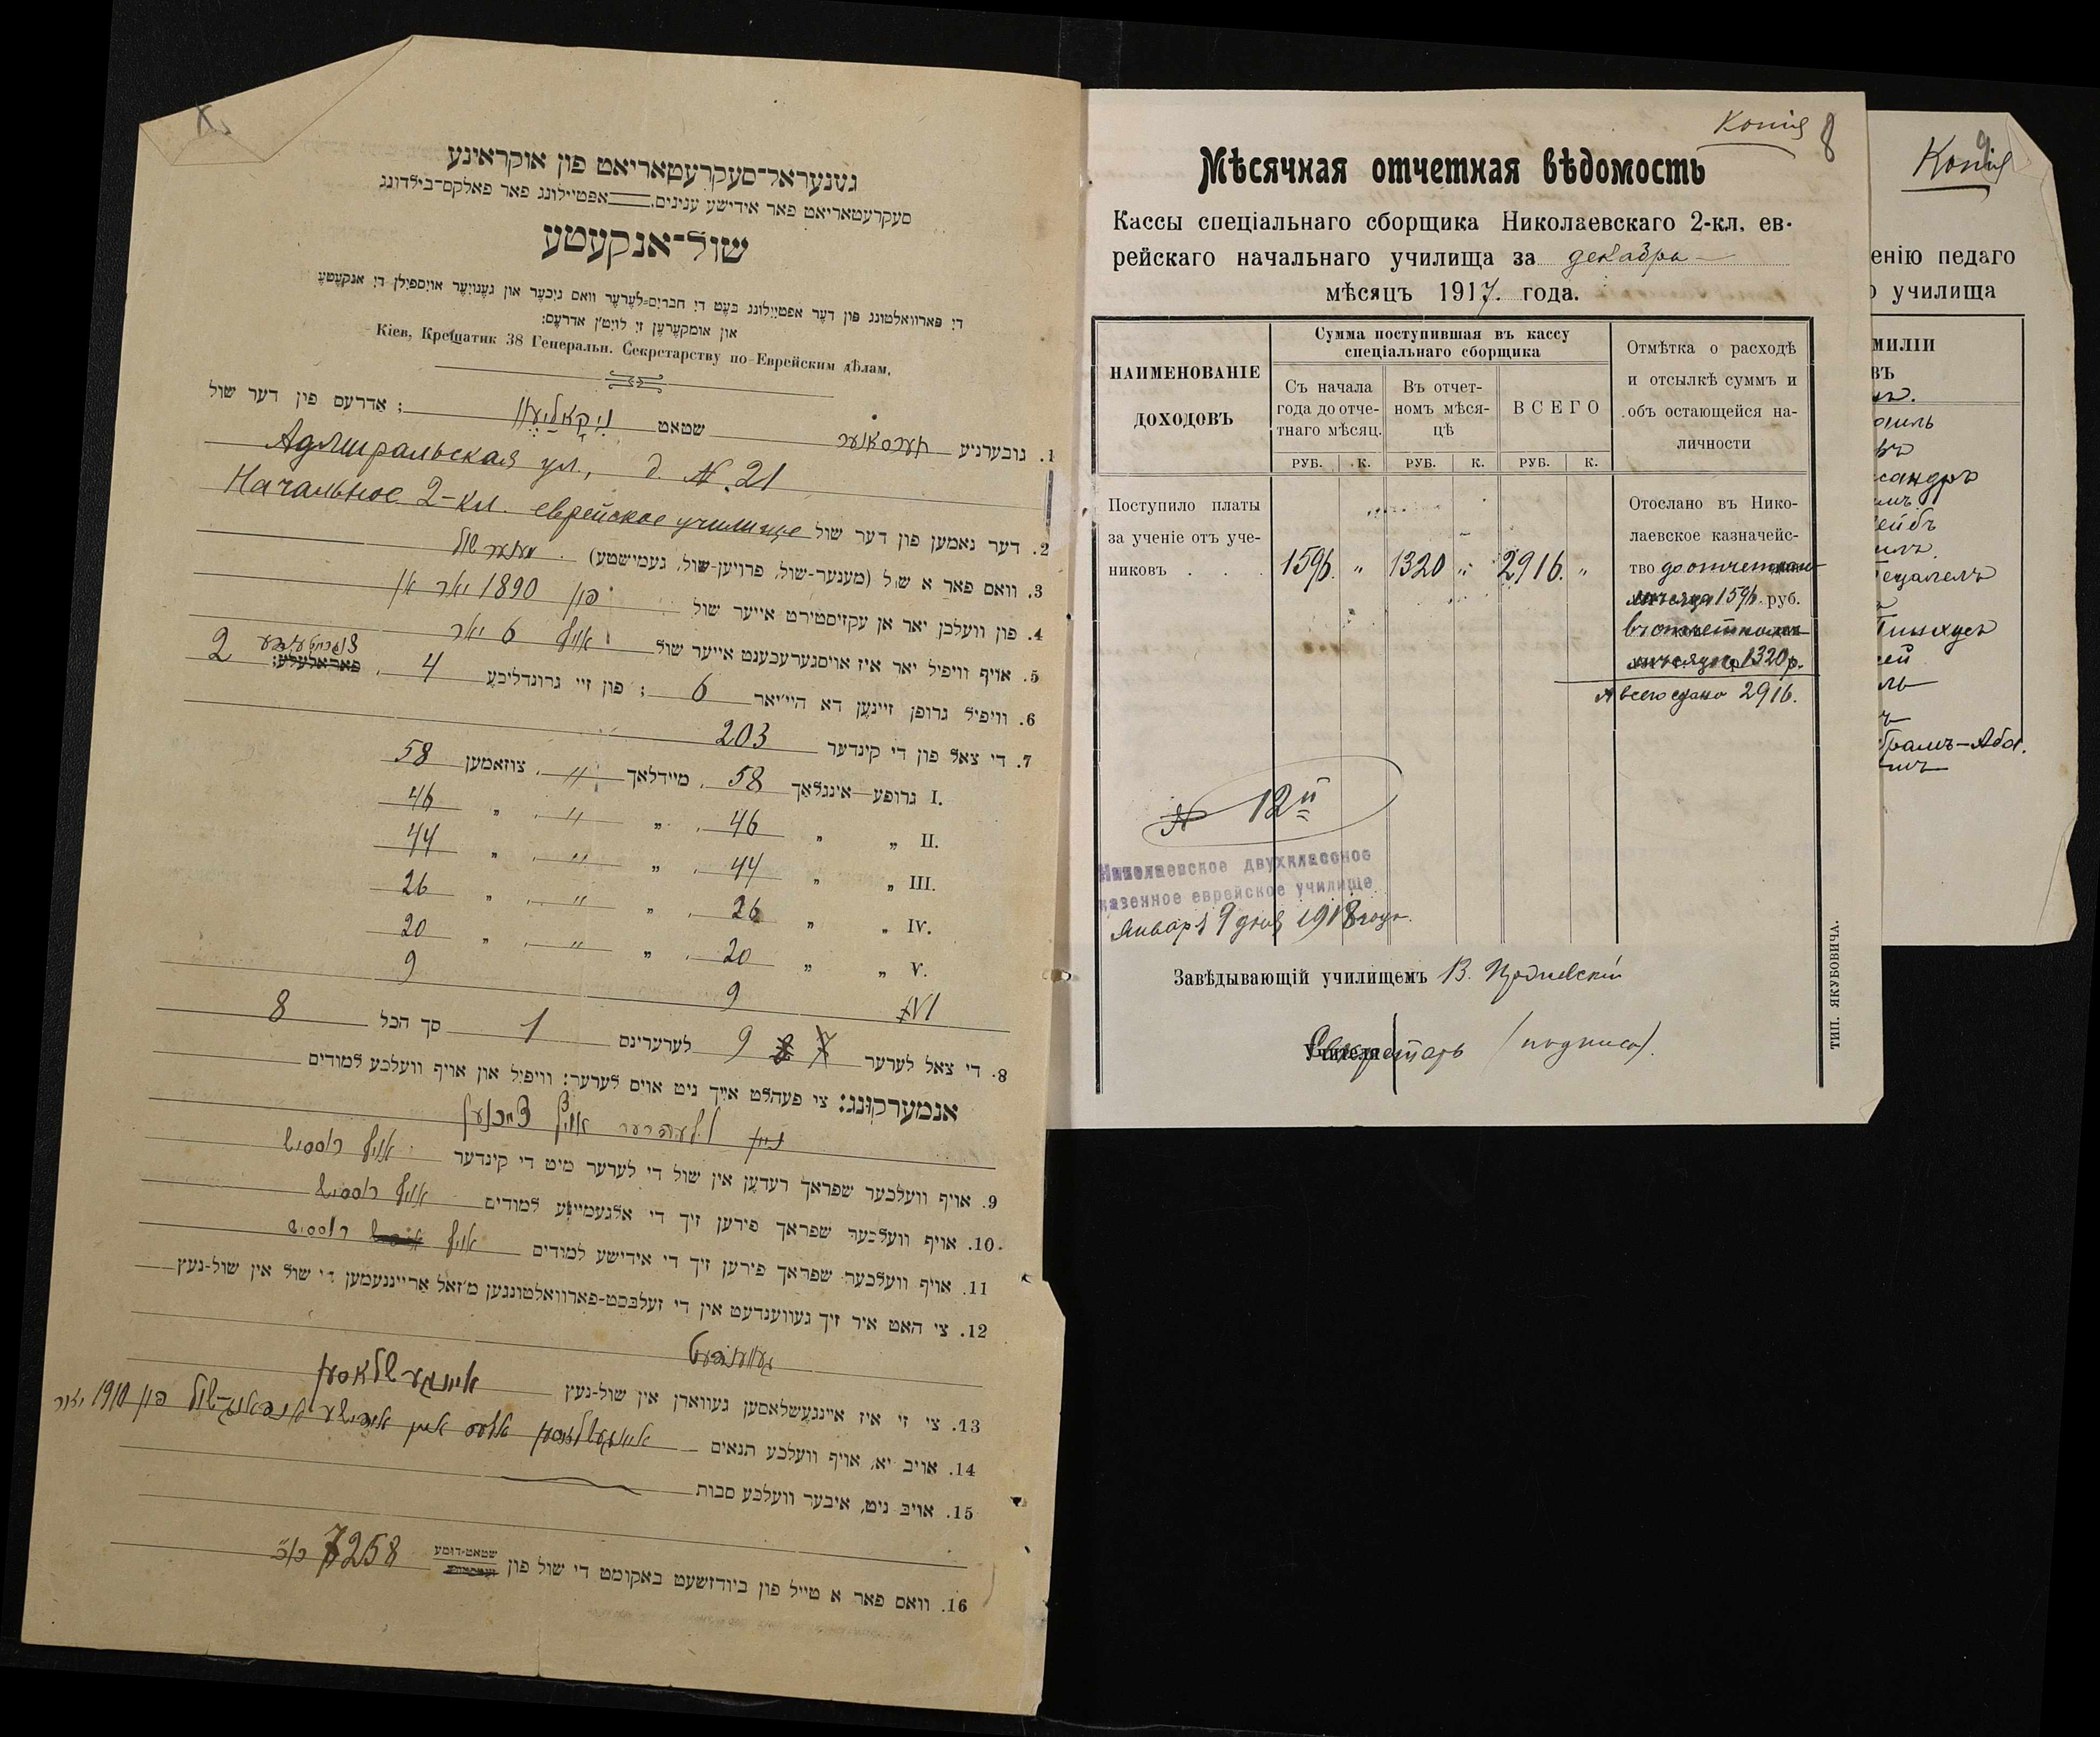 גענעראל־סעקרעטאריאט פון אוקראינע
סעקרעטאריאט פאר אידישע ענינים. אפטיילונג פאר פאלקס־בילדונג
שול־אנקעטע
די פארוואלטונג פון דער אפטיילונג בעט די חברים־לערער וואס גיכער און גענויער אויספילן די אנקעטע
און אומקערען זי לויט'ן אדרעס:
Кіев, Крещатик 38 Генеральн. Секретарству по Еврейским дѣлам.
1. גובערניע חערסאנער שטאט ניקאלייעוו ; אדרעס פין דער שול
Адмиральская ул., д. № 21
Начальное 2-кл. еврейское училище
2. דער נאמען פון דער שול
3. וואס פאר א שול (מענער-שול, פרויען-שול, געמישטע) מענער שול
4. פון וועלכן יאר אן עקזיסטירט אייער שול פון 1890 יאר אן
5. אויף וויפיל יאר איז אויסגערעכענט אייער שול אויף 6 יאר
6. וויפיל גרופן זיינען דא היי־יאר 6 ; פון זיי גרונדליכע 4 , פאראלעלע: 2
7. די צאל פון די קינדער 203
I. גרופע—אינגלאך 58 , מיידלאך " , צוזאמען 58
II. " " 46 , " " , " 46
III. " " 44 , " " , " 44
IV. " " 26 , " " , " 26
V. " " 20 , " " , " 20
VI 9 9
8. די צאל לערער 7 8 9 לערערינס 1 סך הכל 8
אנמערקונג: צי פעהלט אייך ניט אויס לערער: וויפיל און אויף וועלכע למודים
9. אויף וועלכער שפראך רעדען אין שול די לערער מיט די קינדער אויף רוסיש
10. אויף וועלכער שפראך פירען זיך די אלגעמיינע למודים אויף רוסיש
11. אויף וועלכער שפראך פירען זיך די אידישע למודים אויף רוסיש
12. צי האט איר זיך געווענדעט אין די זעלבסט-פארוואלטונגען מ'זאל אריינגעמען די שול אין שול-נעץ
געווענדעט
13. צי זי איז איינגעשלאסען געווארן אין שול-נעץ איינגעשלאסען
14. אויב יא, אויף וועלכע תנאים איינגעשלאסען אלס איין אידישע אנפאנג-שול פון 1910 יאר
15. אויב ניט, איבער וועלכע סבות
16. וואס פאר א טייל פון ביודזשעט באקומט די שול פון שטאט-דומע 7258 רוב
Копія 8
Мѣсячная отчетная вѣдомость
Кассы спеціальнаго сборщика Николаевскаго 2-кл. ев-
рейскаго начальнаго училища за декабрь
мѣсяцъ 1917. года.
НАИМЕНОВАНІЕ ДОХОДОВЪ
Сумма поступившая въ кассу
спеціальнаго сборщика
Съ начала
года до отче-
тнаго мѣсяц.
Въ отчет-
номъ мѣся-
цѣ
ВСЕГО
Отмѣтка о расходѣ
и отсылкѣ суммъ и
объ остающейся на-
личности
РУБ. К. РУБ. К. РУБ. К.
Поступило платы
за ученіе отъ уче-
никовъ . . .
1596. " 1320 " 2916. "
Отослано въ Нико-
лаевское казначейс-
тво до отчетнаго
мѣсяца 1596. руб.
въ отчетномъ
мѣсяцѣ 1320 р.
А всего сдано 2916.
№ 12й
Николаевское двухклассное
казенное еврейское училище
Января 9 дня 1918 года.
Завѣдывающій училищемъ В.
Учителя Секретарь (подпись).
ТИП. ЯКУБОВИЧА.
Копія
9
енію педаго
о училища
МИЛІИ
ВЪ